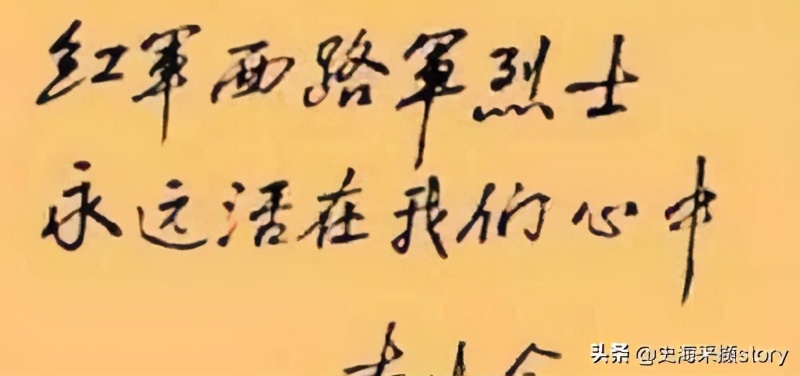 红軍西路軍烈士
永远活在我们心中
头条 @史海采撷story